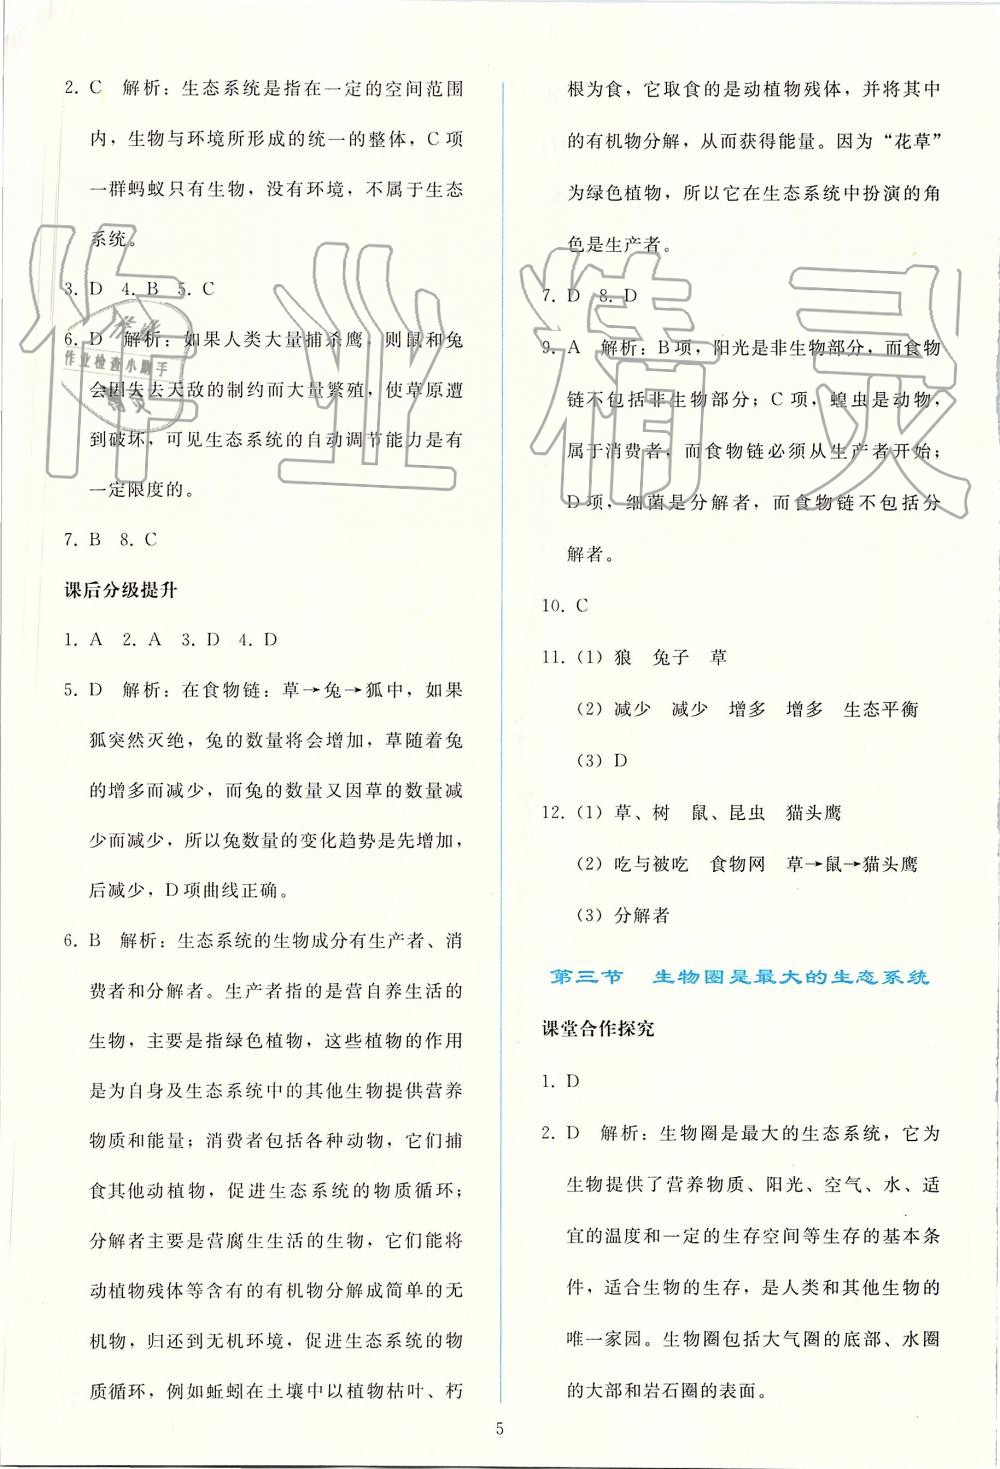 2. C 解析：生态系统是指在一定的空间范围
内，生物与环境所形成的统一的整体，C 项
一群蚂蚁只有生物，没有环境，不属于生态
系统。
3. D 4. B 5. C
6. D 解析：如果人类大量捕杀鹰，则鼠和兔
会因失去天敌的制约而大量繁殖，使草原遭
到破坏，可见生态系统的自动调节能力是有
一定限度的。
7. B 8. C
课后分级提升
1. A 2. A 3. D 4. D
5. D 解析：在食物链：草→兔→狐中，如果
狐突然灭绝，兔的数量将会增加，草随着兔
的增多而减少，而兔的数量又因草的数量减
少而减少，所以兔数量的变化趋势是先增加，
后减少，D 项曲线正确。
6. B 解析：生态系统的生物成分有生产者、消
费者和分解者。生产者指的是营自养生活的
生物，主要是指绿色植物，这些植物的作用
是为自身及生态系统中的其他生物提供营养
物质和能量；消费者包括各种动物，它们捕
食其他动植物，促进生态系统的物质循环；
分解者主要是营腐生生活的生物，它们能将
动植物残体等含有的有机物分解成简单的无
机物，归还到无机环境，促进生态系统的物
质循环，例如蚯蚓在土壤中以植物枯叶、朽
根为食，它取食的是动植物残体，并将其中
的有机物分解，从而获得能量。因为“花草”
为绿色植物，所以它在生态系统中扮演的角
色是生产者。
7. D 8. D
9. A 解析：B 项，阳光是非生物部分，而食物
链不包括非生物部分；C 项，蝗虫是动物，
属于消费者，而食物链必须从生产者开始；
D 项，细菌是分解者，而食物链不包括分
解者。
10. C
11.（1）狼 兔子 草
（2）减少 减少 增多 增多 生态平衡
（3）D
12.（1）草、树 鼠、昆虫 猫头鹰
（2）吃与被吃 食物网 草→鼠→猫头鹰
（3）分解者
第三节 生物圈是最大的生态系统
课堂合作探究
1. D
2. D 解析：生物圈是最大的生态系统，它为
生物提供了营养物质、阳光、空气、水、适
宜的温度和一定的生存空间等生存的基本条
件，适合生物的生存，是人类和其他生物的
唯一家园。生物圈包括大气圈的底部、水圈
的大部和岩石圈的表面。
5
作业精灵
作业检查小助手
精灵